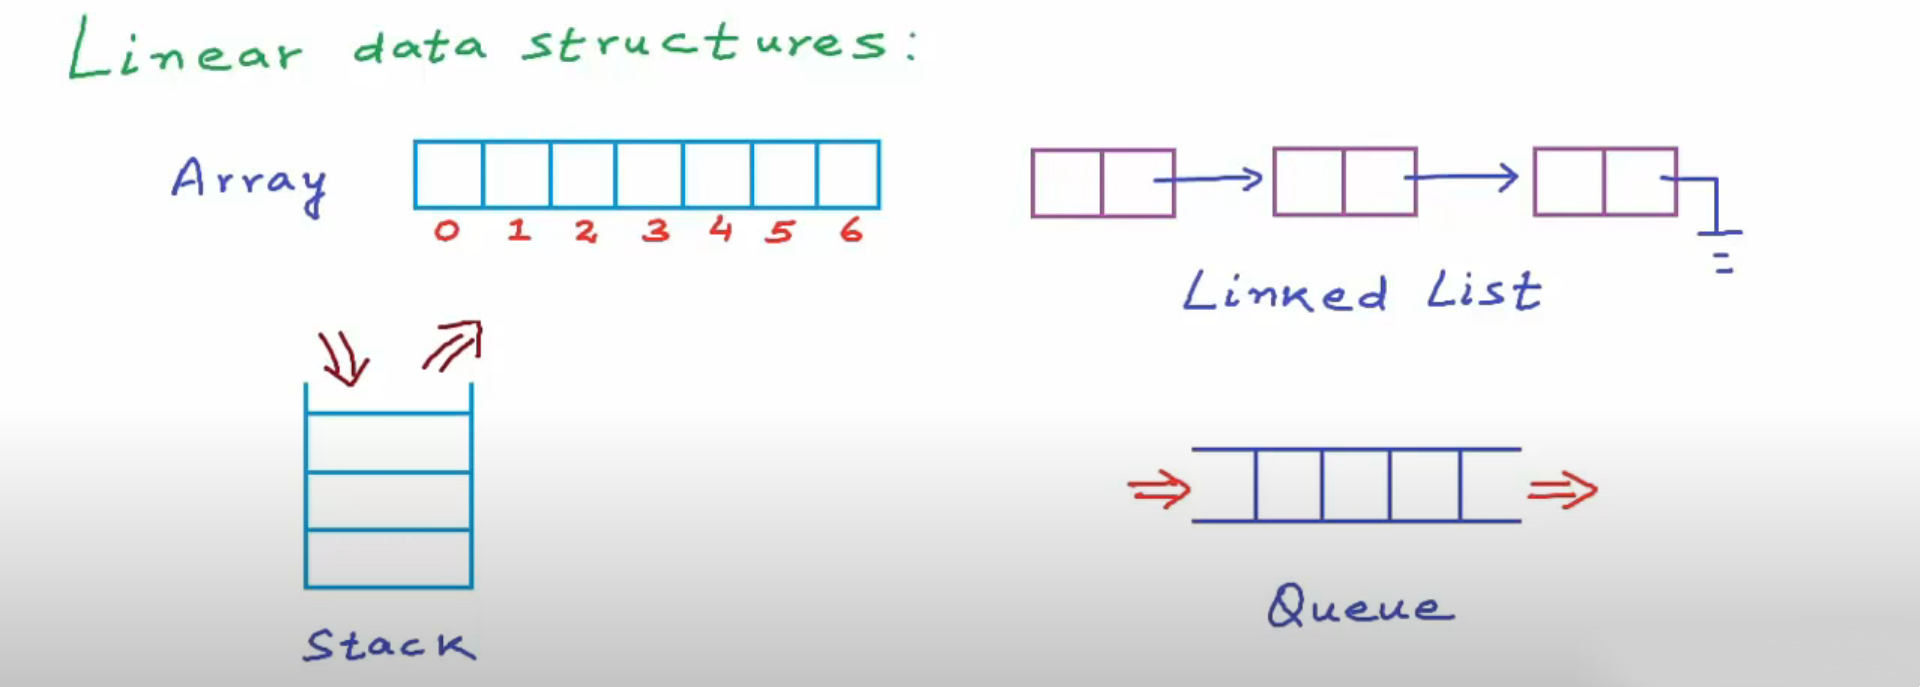 Linear data structures:
Array
0 1 2 3 4 5 6
Linked List
Stack
Queue